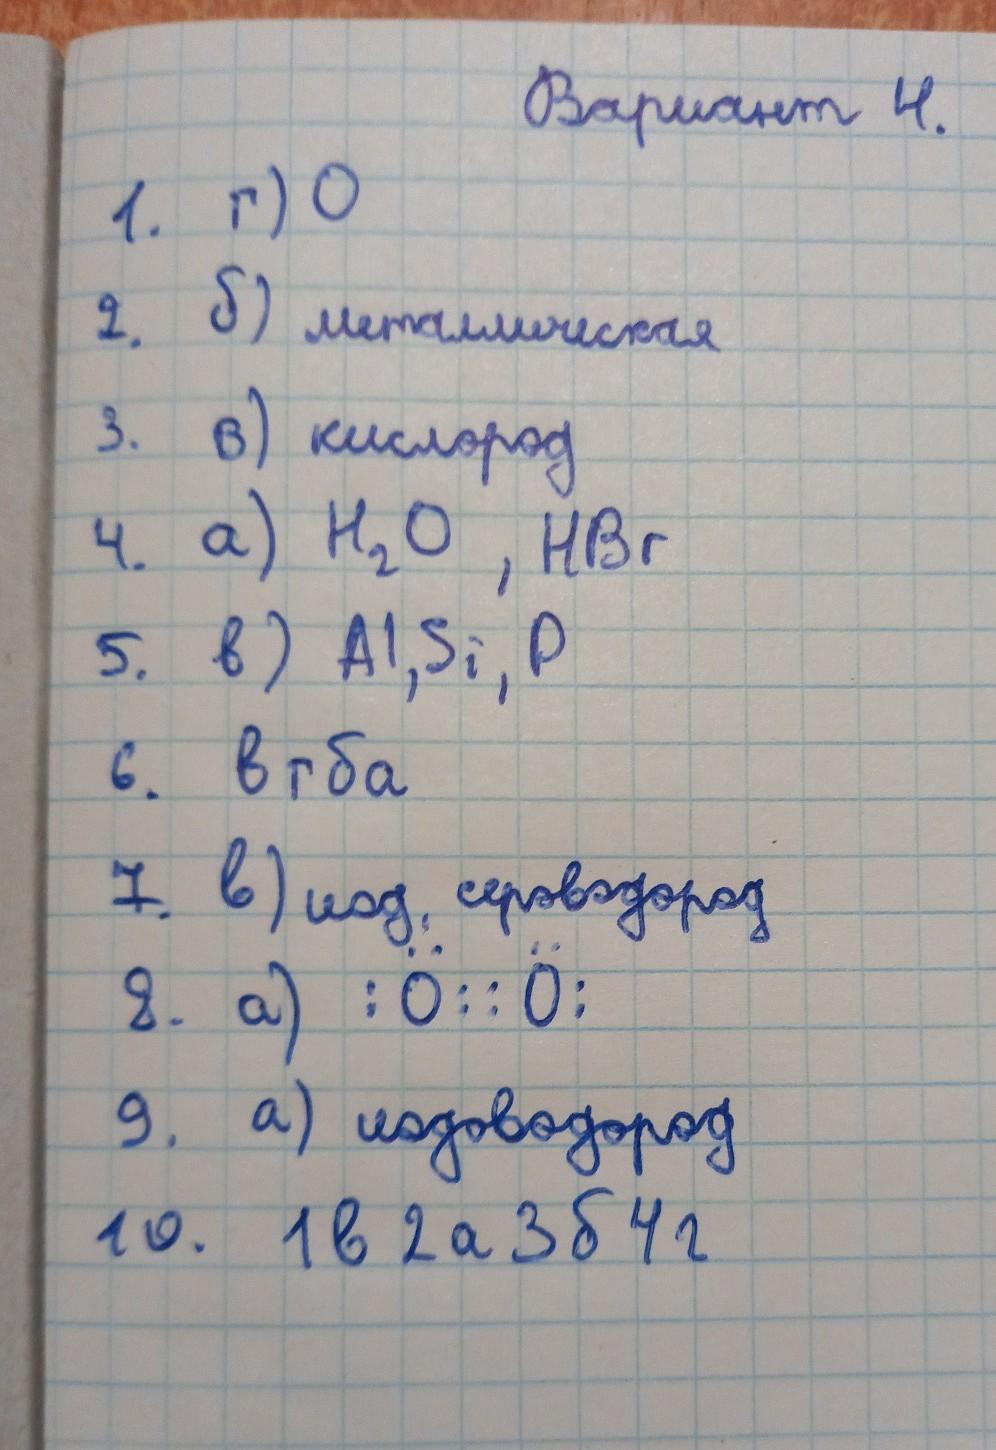 Вариант 4.
1. г) O
2. б) металлическая
3. в) кислород
4. а) H₂O , HBr
5. в) Al, Si, P
6. в г б а
7. в) иод, сероводород
8. а) :Ö::Ö:
9. а) иодоводород
10. 1в 2а 3б 4г